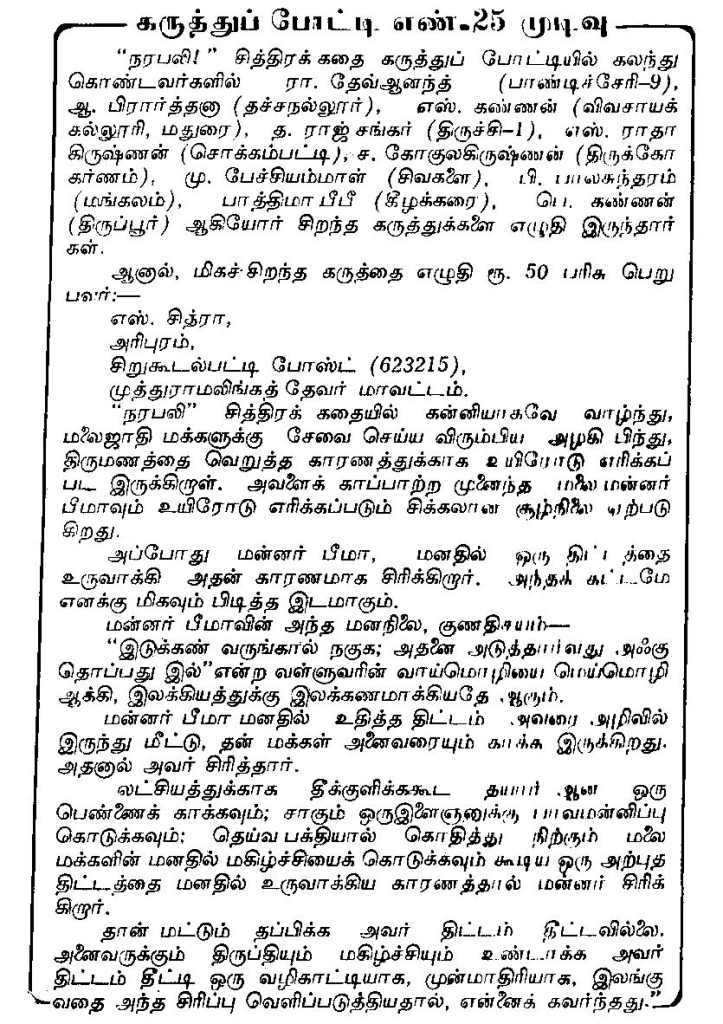 கருத்துப் போட்டி எண்.25 முடிவு
"நரபலி!" சித்திரக்கதை கருத்துப் போட்டியில் கலந்து
கொண்டவர்களில் ரா. தேவ்ஆனந்த் (பாண்டிச்சேரி-9),
ஆ. பிரார்த்தனா (தச்சநல்லூர்), எஸ். கண்ணன் (விவசாயக்
கல்லூரி, மதுரை), த. ராஜ்சங்கர் (திருச்சி-1), எஸ். ராதா
கிருஷ்ணன் (சொக்கம்பட்டி), ச. கோகுலகிருஷ்ணன் (திருக்கோ
கர்ணம்), மு. பேச்சியம்மாள் (சிவகளை), பி. பாலசுந்தரம்
(மங்கலம்), பாத்திமா பீபீ (கீழக்கரை), பெ. கண்ணன்
(திருப்பூர்) ஆகியோர் சிறந்த கருத்துக்களை எழுதி இருந்தார்
கள்.
ஆனால், மிகச்சிறந்த கருத்தை எழுதி ரூ. 50 பரிசு பெறு
பவர்:—
எஸ். சித்ரா,
அரிபுரம்,
சிறுகூடல்பட்டி போஸ்ட் (623215),
முத்துராமலிங்கத் தேவர் மாவட்டம்.
"நரபலி" சித்திரக் கதையில் கன்னியாகவே வாழ்ந்து,
மலைஜாதி மக்களுக்கு சேவை செய்ய விரும்பிய அழகி பிந்து,
திருமணத்தை வெறுத்த காரணத்துக்காக உயிரோடு எரிக்கப்
பட இருக்கிறாள். அவளைக் காப்பாற்ற முனைந்த மலைமன்னர்
பீமாவும் உயிரோடு எரிக்கப்படும் சிக்கலான சூழ்நிலை ஏற்படு
கிறது.
அப்போது மன்னர் பீமா, மனதில் ஒரு திட்டத்தை
உருவாக்கி அதன் காரணமாக சிரிக்கிறார். அந்தக் கட்டமே
எனக்கு மிகவும் பிடித்த இடமாகும்.
மன்னர் பீமாவின் அந்த மனநிலை, குணதிசயம்—
"இடுக்கண் வருங்கால் நகுக; அதனை அடுத்தூர்வது அஃகு
தொப்பது இல்" என்ற வள்ளுவரின் வாய்மொழியை மெய்மொழி
ஆக்கி, இலக்கியத்துக்கு இலக்கணமாக்கியதே ஆகும்.
மன்னர் பீமா மனதில் உதித்த திட்டம் அவரை அழிவில்
இருந்து மீட்டு, தன் மக்கள் அனைவரையும் காக்க இருக்கிறது.
அதனால் அவர் சிரித்தார்.
லட்சியத்துக்காக தீக்குளிக்ககூட தயார் ஆன ஒரு
பெண்ணைக் காக்கவும்; சாகும் ஒருஇளைஞனுக்கு பாவமன்னிப்பு
கொடுக்கவும்; தெய்வபக்தியால் கொதித்து நிற்கும் மலை
மக்களின் மனதில் மகிழ்ச்சியைக் கொடுக்கவும் கூடிய ஒரு அற்புத
திட்டத்தை மனதில் உருவாக்கிய காரணத்தால் மன்னர் சிரிக்
கிறார்.
தான் மட்டும் தப்பிக்க அவர் திட்டம் தீட்டவில்லை.
அனைவருக்கும் திருப்தியும் மகிழ்ச்சியும் உண்டாக்க அவர்
திட்டம் தீட்டி ஒரு வழிகாட்டியாக, முன்மாதிரியாக, இலங்கு
வதை அந்த சிரிப்பு வெளிப்படுத்தியதால், என்னைக் கவர்ந்தது."